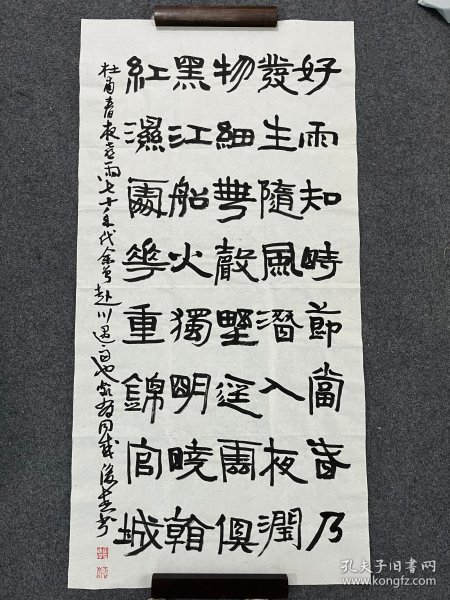 好雨知時節當春乃
發生隨風潛入夜潤
物細無聲野徑雲俱
黑江船火獨明曉看
紅濕處華重錦官城
杜甫春夜喜雨七十年代余曾赴川遇同感
孔夫子旧书网
www.kongfz.com